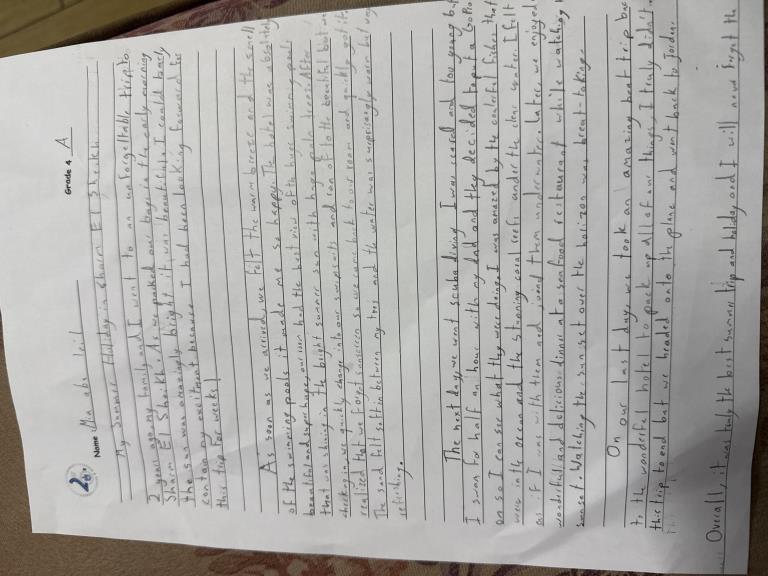 Name Mia abu
Grade 4 A
My Summer Holiday in Sharm El Sheikh
2 years ago my family and I went to an unforgettable trip to
Sharm El Sheikh. As we packed our bags in the early morning
the sun was amazingly bright it was beautiful. I could barly
contain my excitment because I had been looking forward for
this trip for weeks!
As soon as we arrived we felt the warm breeze and the smell
of the swimming pools it made me so happy. The hotel was absolutely
beautiful and super huge, our room had the best view of the huge swimming pools
that was shining in the bright summer sun with huge palm trees. After
checking in we quickly change into our swimsuits and ran off to the beautiful but we
realized that we forgot sunscreen so we came back to our room and quickly got it.
The sand felt soft in between my toes and the water was surprisingly warm but very
refreshing.
The next day, we went scuba diving I was scared and too young but
I swam for half an hour with my dad and they decided to put a GoPro
on so I can see what they were doing. I was amazed by the colorful fishes that
were in the ocean and the stunning coral reefs under the clear water. I felt
as if I was with them and joined them underwater. Later, we enjoyed
wonderful and delicious dinner at a seafood restaurant while watching
sunset. Watching the sun set over the horizon was breat-taking.
On our last day, we took an amazing boat trip bac
to the wonderful hotel to pack up all of our things, I truly didn't
this trip to end but we headed onto the plane and went back to Jordan.
Overall, it was truly the best summer trip and holiday and I will never forget the